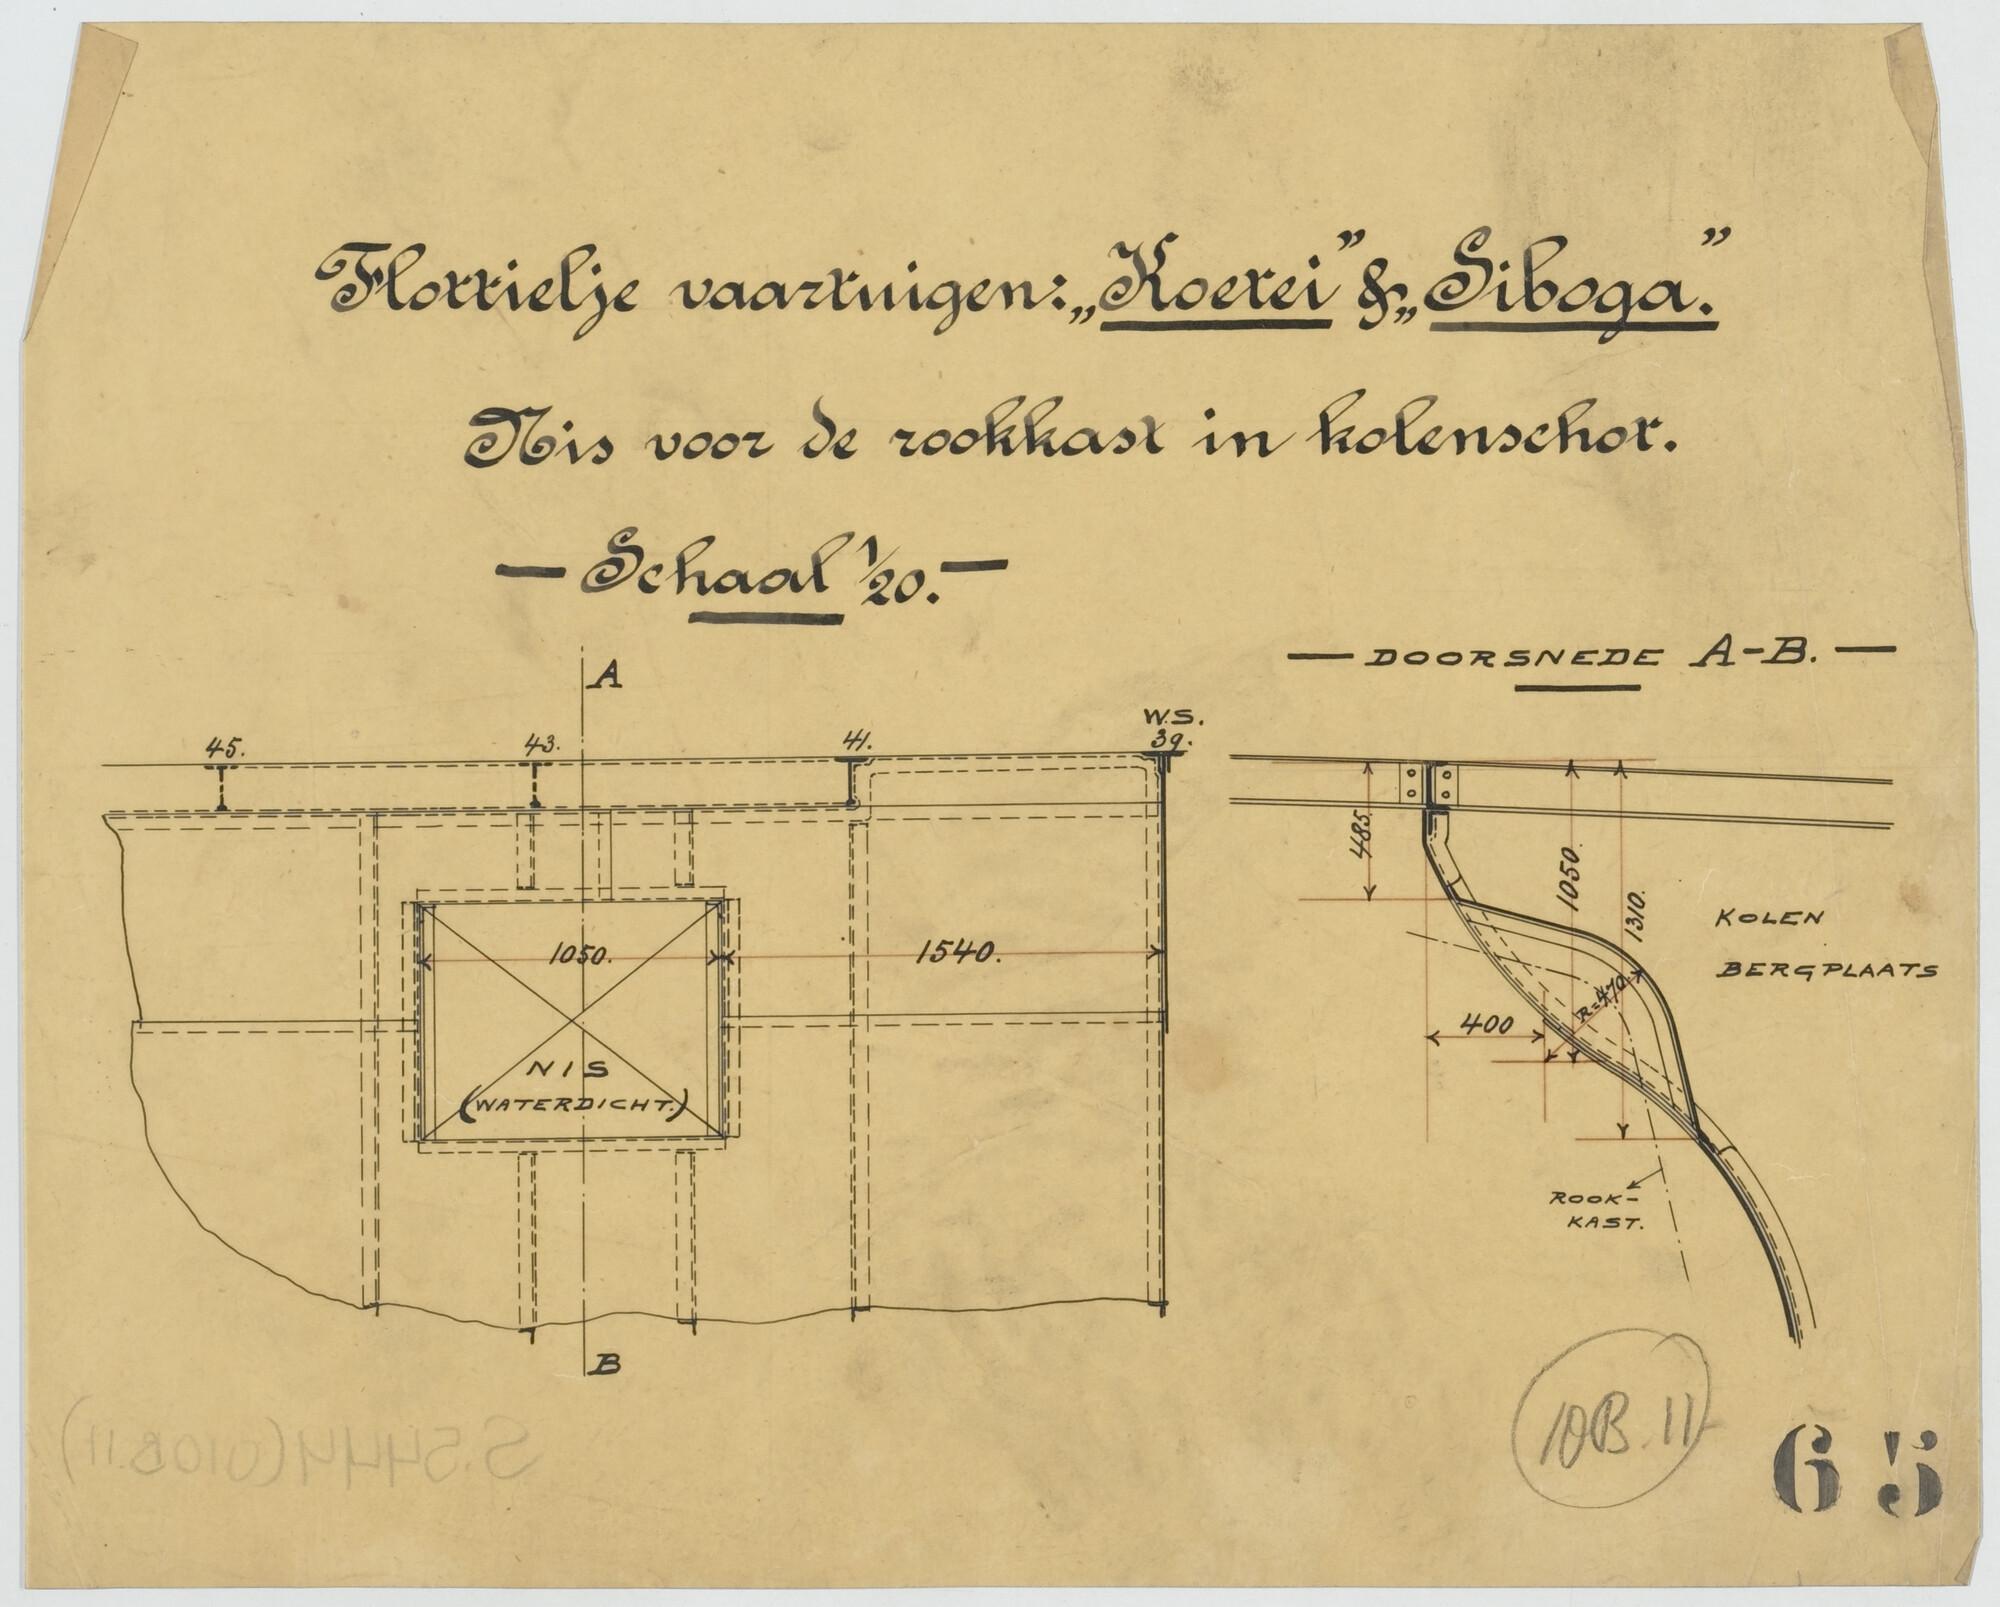 Flottielje vaartuigen: „Koetei” & „Siboga.”
Nis voor de rookkast in kolenschot.
— Schaal 1/20. —
— DOORSNEDE A-B. —
A
W.S.
45.
43.
41.
39.
485.
1050.
1310.
KOLEN
BERGPLAATS
1050.
1540.
R=470.
400
NIS
(WATERDICHT.)
ROOK-
KAST.
B
10B.11
65
S.5444 (010B.11)